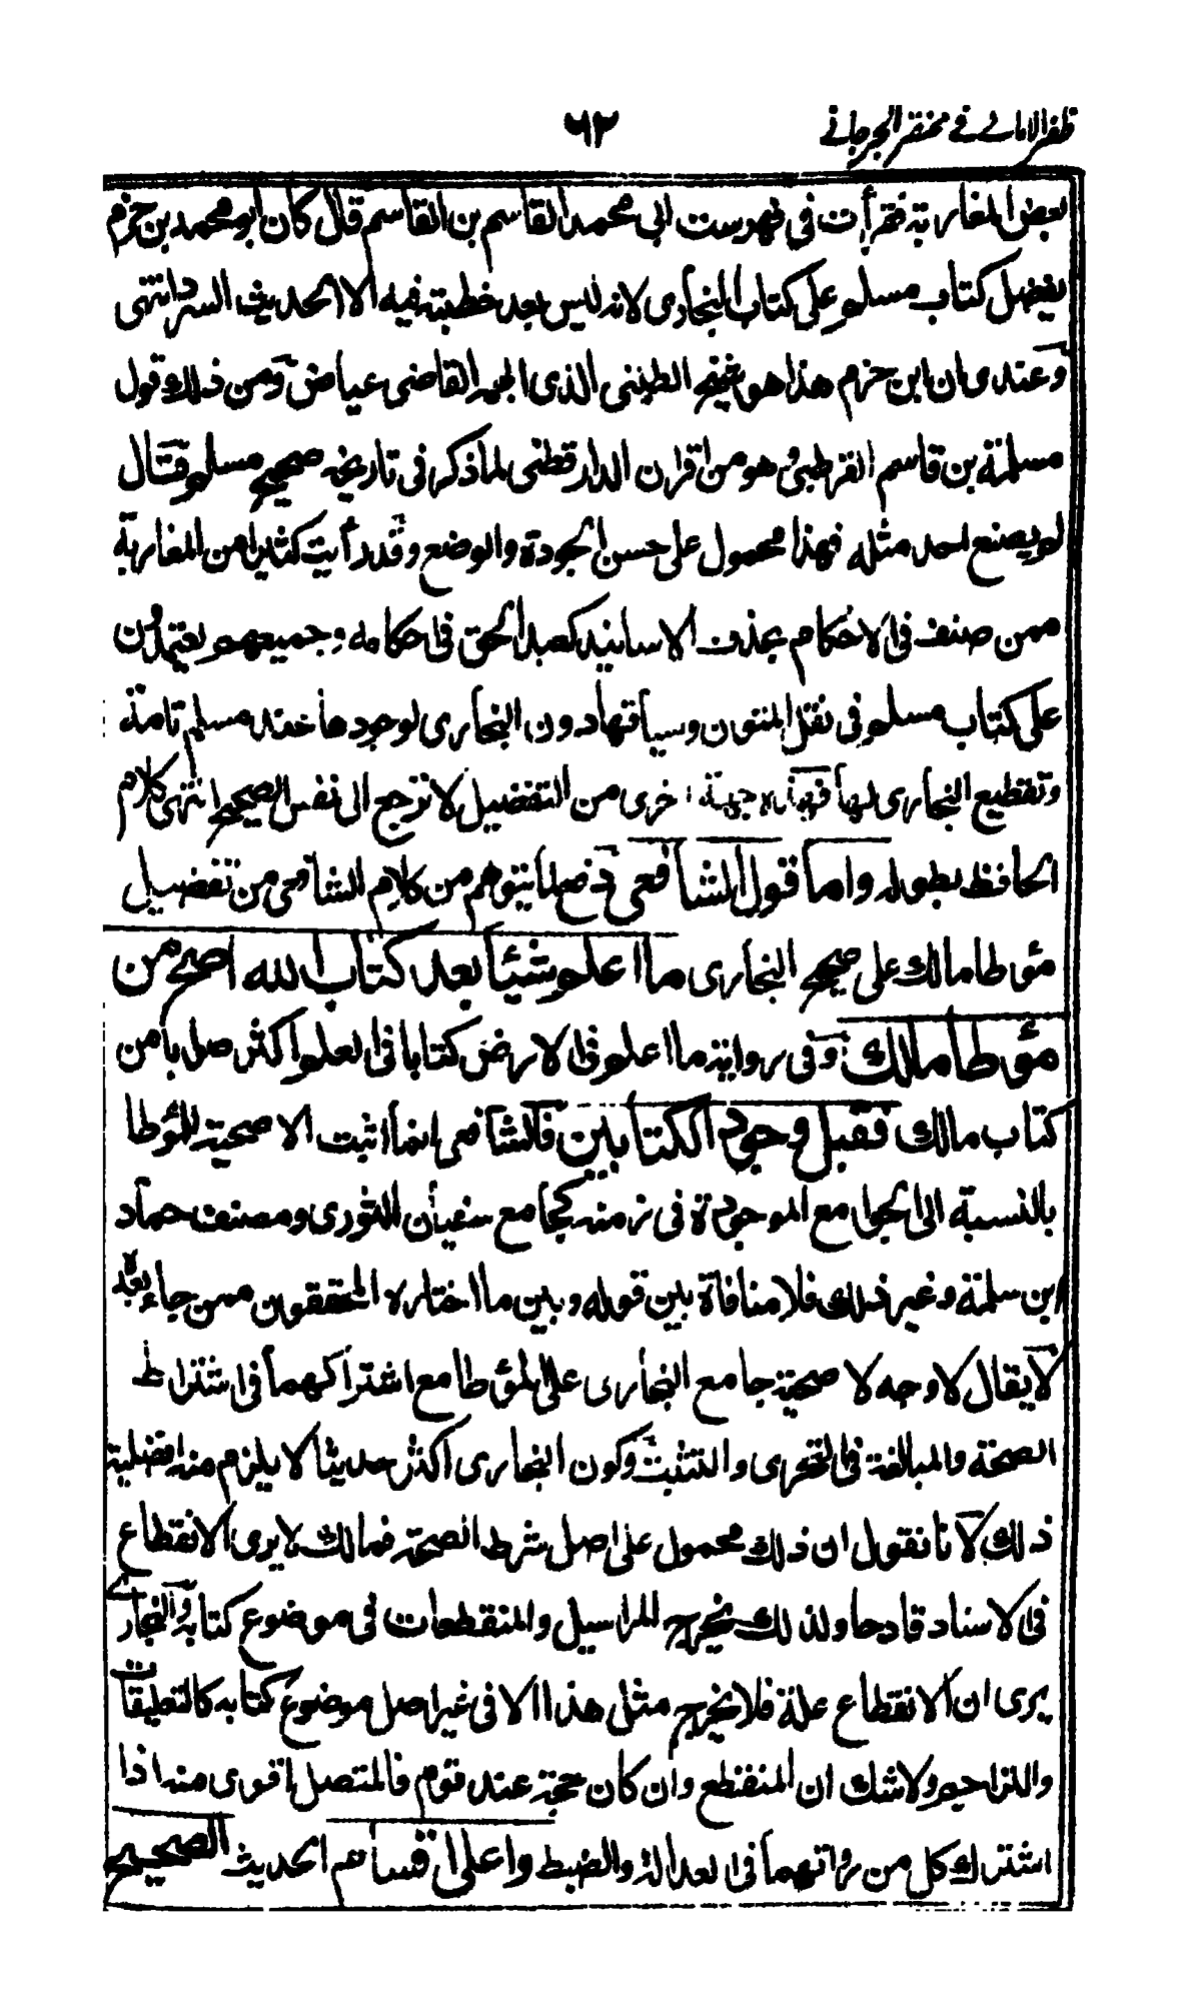 ظفر الامانى فى مختصر الجرجانى
٦٢
بعض المغاربة فقرأت فى فهرست ابى محمد القاسم بن القاسم قال كان ابو محمد بن حزم
يفضل كتاب مسلم على كتاب البخارى لانه ليس بعد خطبته فيه الا الحديث السرد انتهى
وعندى ان ابن حزم هذا هو شيخ الطبنى الذى ابهمه القاضى عياض ومن ذلك قول
مسلمة بن قاسم القرطبى وهو من اقران الدارقطنى لما ذكر فى تاريخه صحيح مسلم وقال
لم يصنع احد مثله فهذا محمول على حسن الجودة والوضع وقد رأيت كثيرا من المغاربة
ممن صنف فى الاحكام بحذف الاسانيد كعبد الحق فى احكامه وجميعهم يعتمدون
على كتاب مسلم فى نقل المتون وسياقها دون البخارى لوجودها عند مسلم تامة
وتقطيع البخارى لها فهذه جهة اخرى من التفضيل لا ترجع الى نفس الصحيح انتهى كلام
الحافظ بطوله واما قول الشافعى دفع لما يتوهم من كلام الشافعى من تفضيل
مؤطا مالك على صحيح البخارى ما اعلم شيئا بعد كتاب الله اصح من
مؤطا مالك وفى رواية ما اعلم فى الارض كتابا فى العلم اكثر صوابا من
كتاب مالك فقبل وجود الكتابين فالشافعى انما اثبت الاصحية للمؤطا
بالنسبة الى الجوامع الموجودة فى زمنه كجامع سفيان الثورى ومصنف حماد
ابن سلمة وغير ذلك فلا منافاة بين قوله وبين ما اختاره المحققون ممن جاء بعده
لا يقال لا وجه لاصحية جامع البخارى على المؤطا مع اشتراكهما فى اشتراط
الصحة والمبالغة فى التحرى والتثبت وكون البخارى اكثر حديثا لا يلزم منه افضلية
ذلك لانا نقول ان ذلك محمول على اصل شرط الصحة فمالك لا يرى الانقطاع
فى الاسناد قادحا ولذلك يخرج المراسيل والمنقطعات فى موضوع كتابه والبخارى
يرى ان الانقطاع علة فلا يخرج مثل هذا الا فى غير اصل موضوع كتابه كالتعليقات
والتراجم ولا شك ان المنقطع وان كان حجة عند قوم فالمتصل اقوى منه اذا
اشترك كل من رواتهما فى العدالة والضبط واعلى اقسام الحديث الصحيح